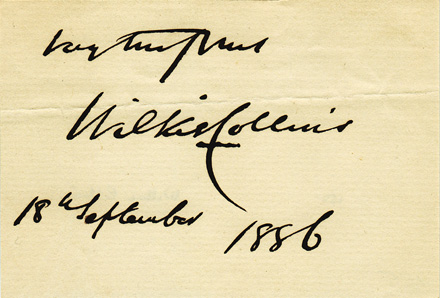 Very truly yours
Wilkie Collins
18th September 1886